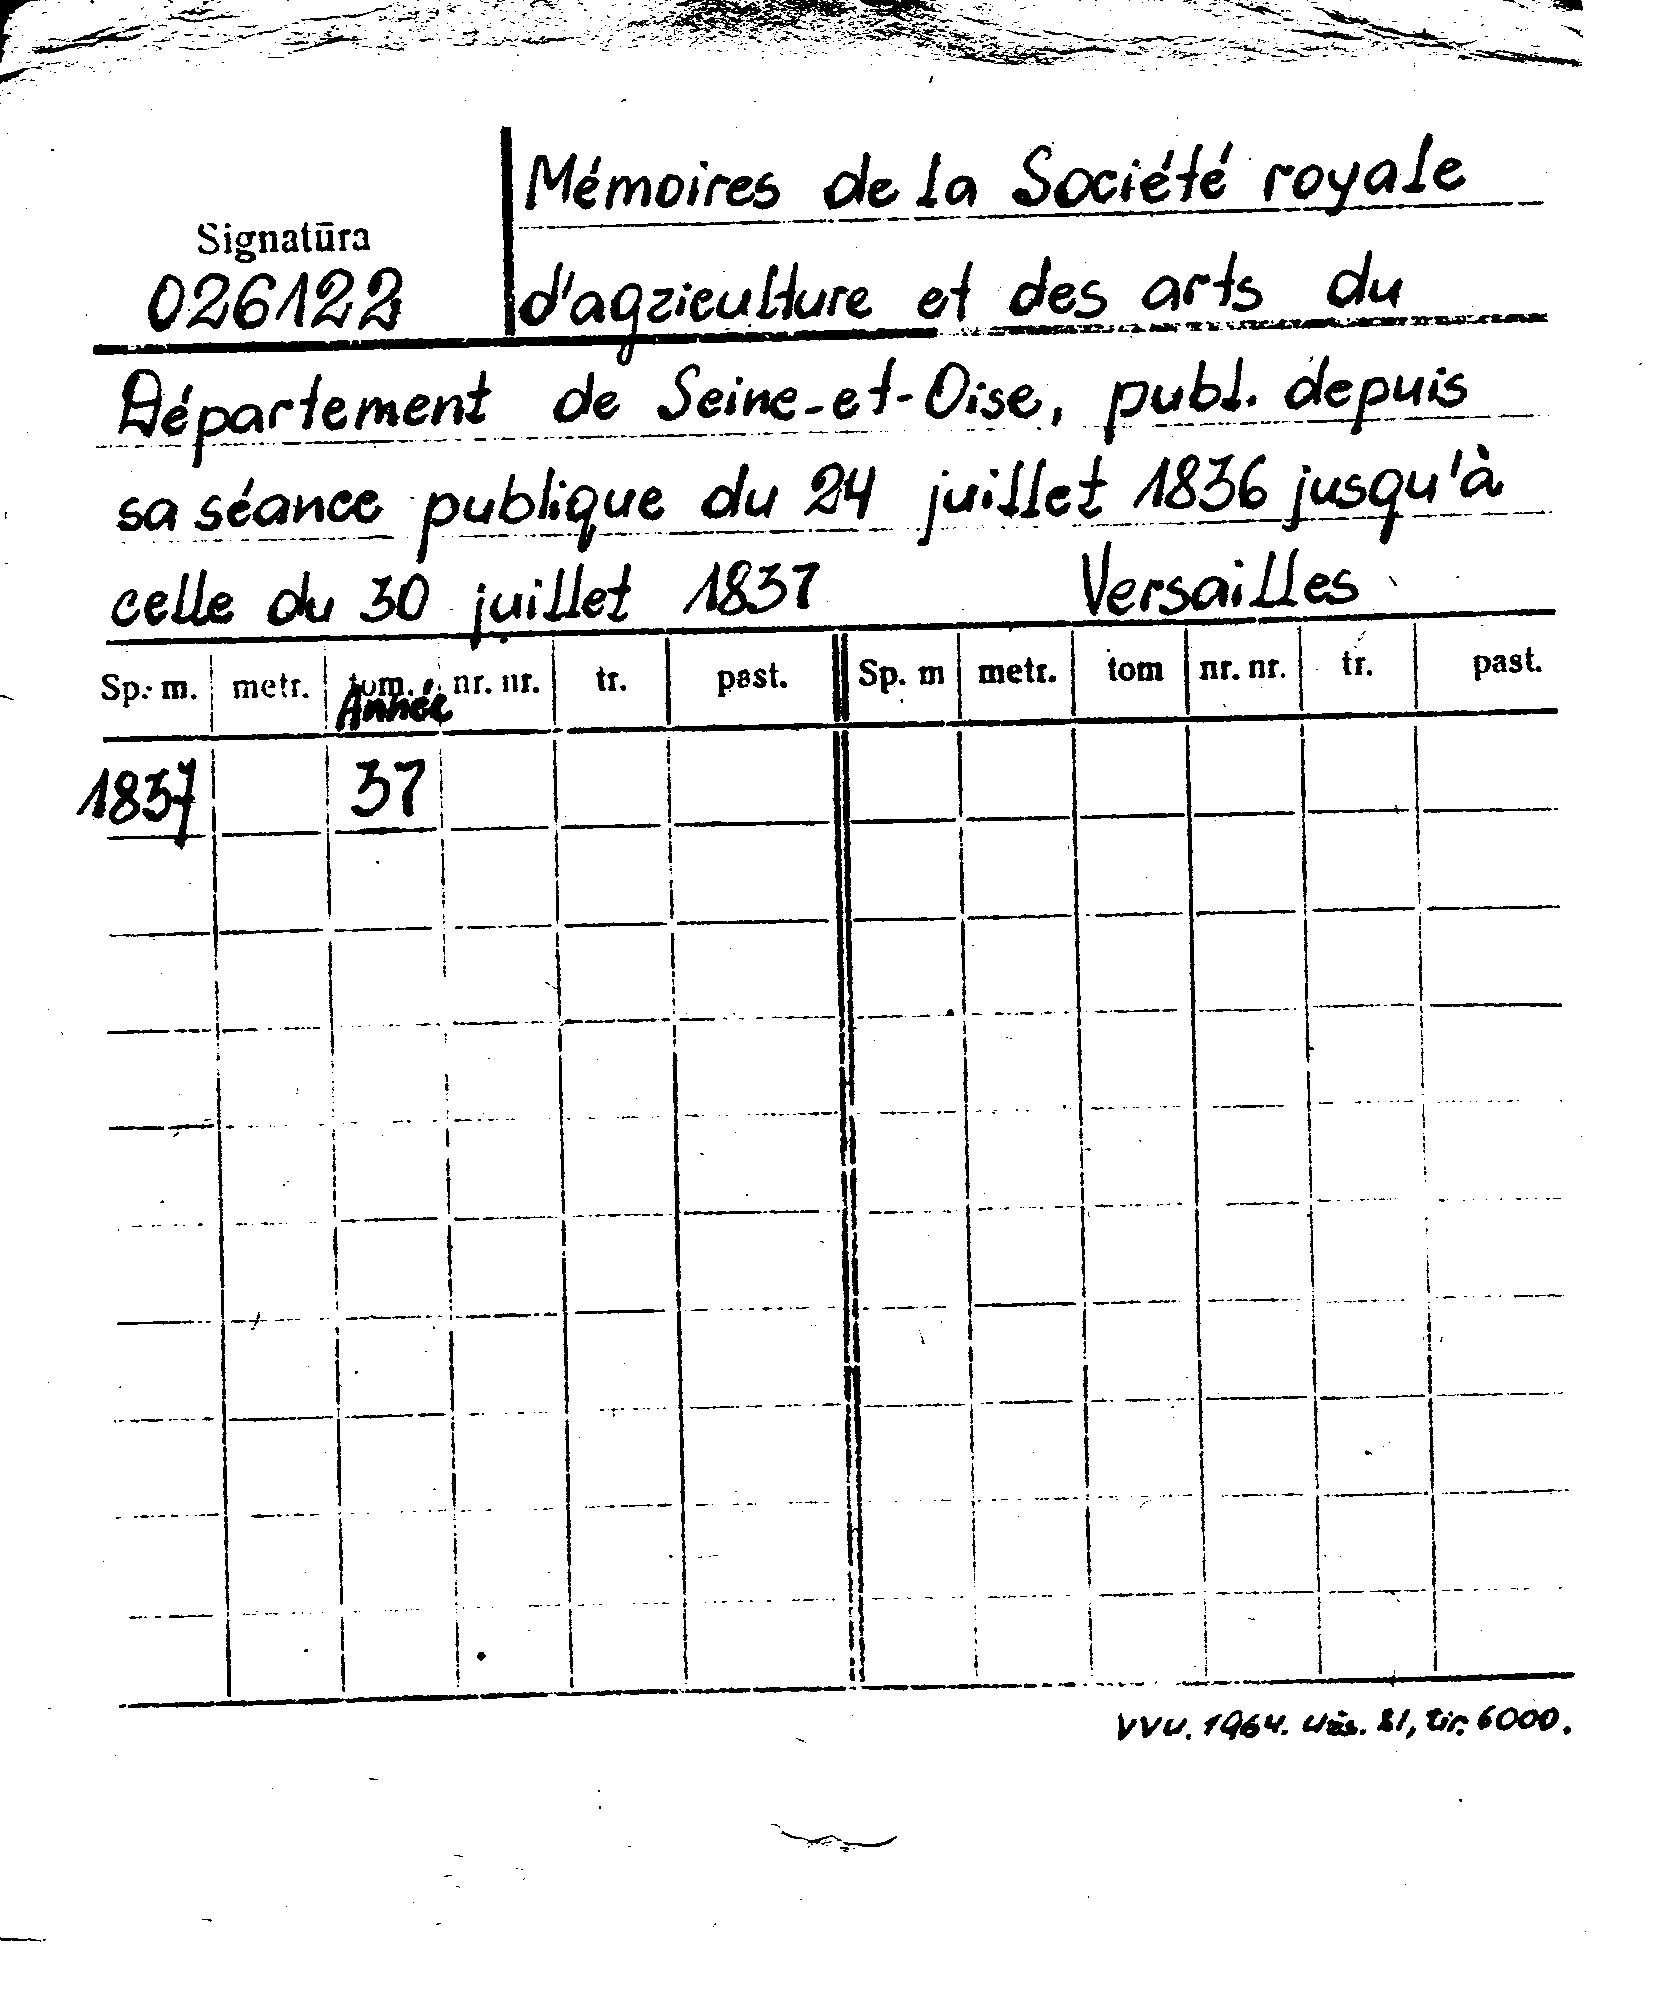 Mémoires de la Société royale
Signatūra
026122
d'agriculture et des arts du
Département de Seine-et-Oise, publ. depuis
sa séance publique du 24 juillet 1836 jusqu'à
celle du 30 juillet 1837 Versailles
Sp. m. metr. tom. nr. nr. tr. past. Sp. m metr. tom nr. nr. tr. past.
Année
1837 37
VVU. 1964. Užs. 81, tir. 6000.